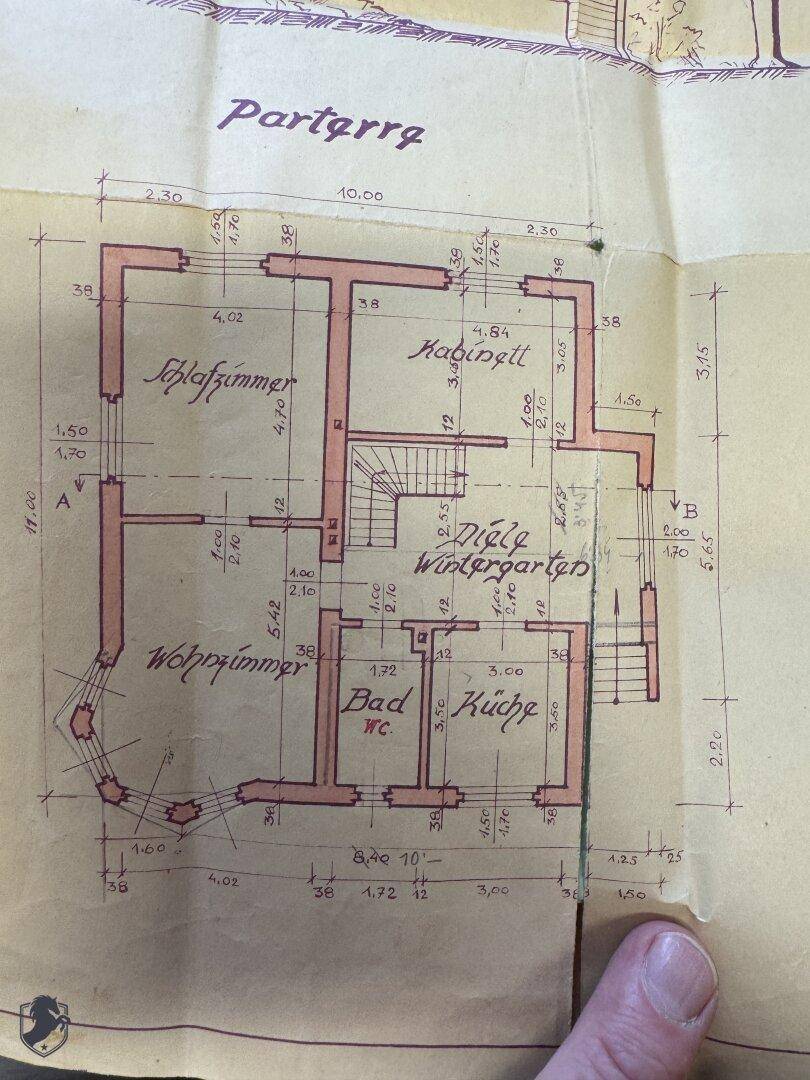 Parterre
2.30
10.00
2.30
1.50
1.70
38
38
1.50
1.70
38
38
4.02
38
4.84
38
Schlafzimmer
Kabinett
3.05
3,15
4.70
1.50
1.00
2.10
12
12
1.50
1.70
A
B
12
1.00
2.10
2,55
3.45
Diele
Wintergarten
2.00
1.70
5.65
11.00
1.00
2.10
5.42
1.00
2.10
12
1.00
2.10
12
38
1.72
12
3.00
38
Wohnzimmer
Bad
WC.
Küche
3,50
3,50
2.20
38
38
1.50
1.70
38
1.60
8.40 10'-
1.25
25
38
4.02
38
1.72
12
3,00
38
1,50